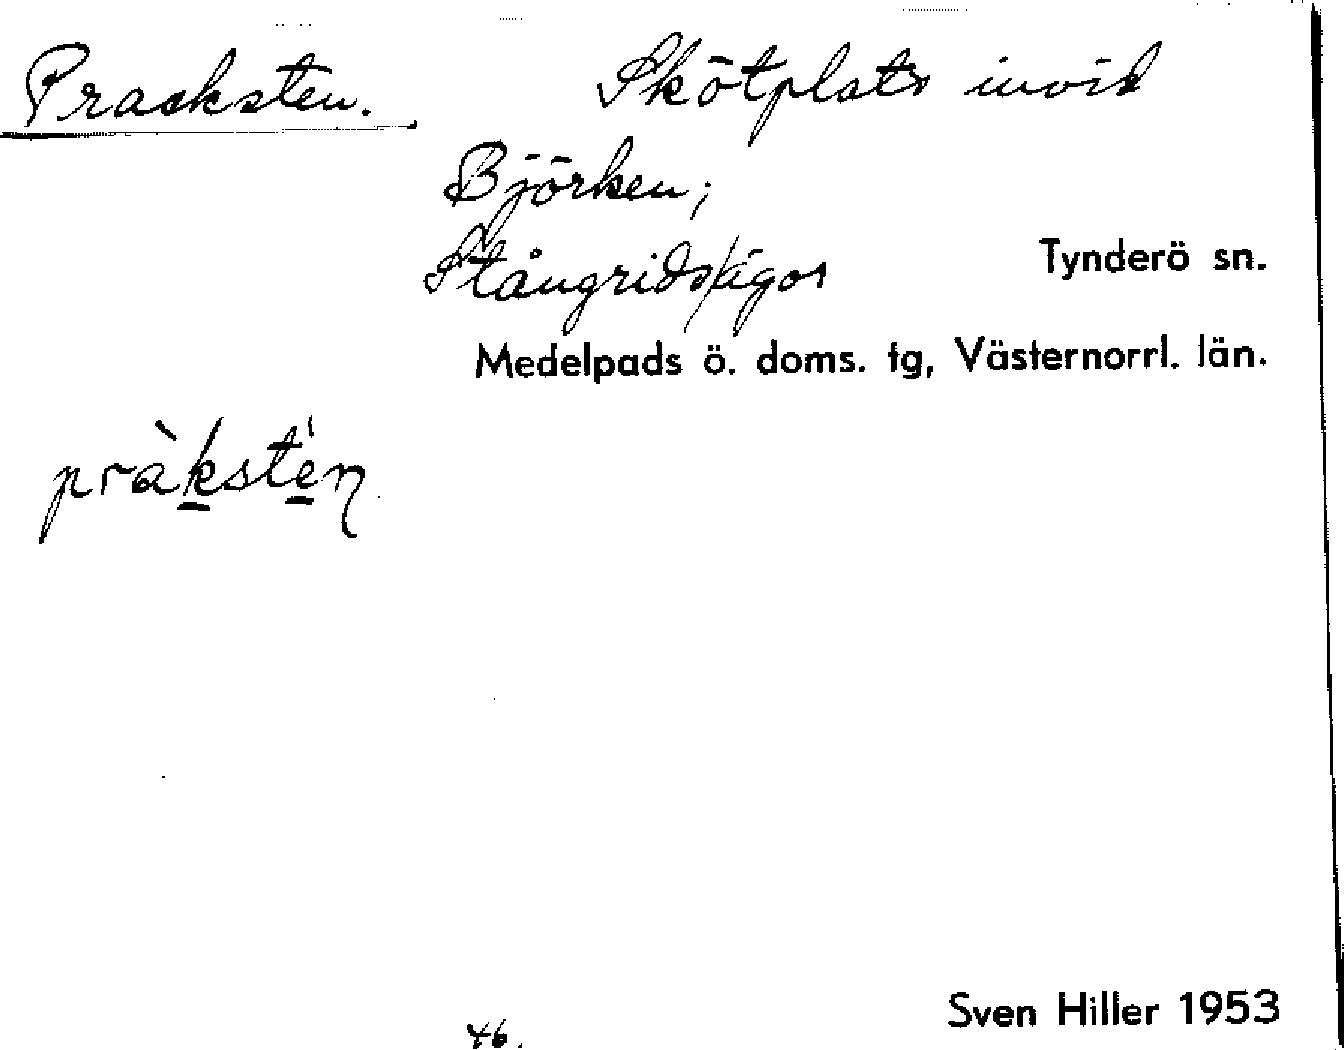 Pracksten. Skötplats invid
Björken;
Stångrids/ägor Tynderö sn.
Medelpads ö. doms. tg, Västernorrl. län.
pràkste̍n
Sven Hiller 1953
46.